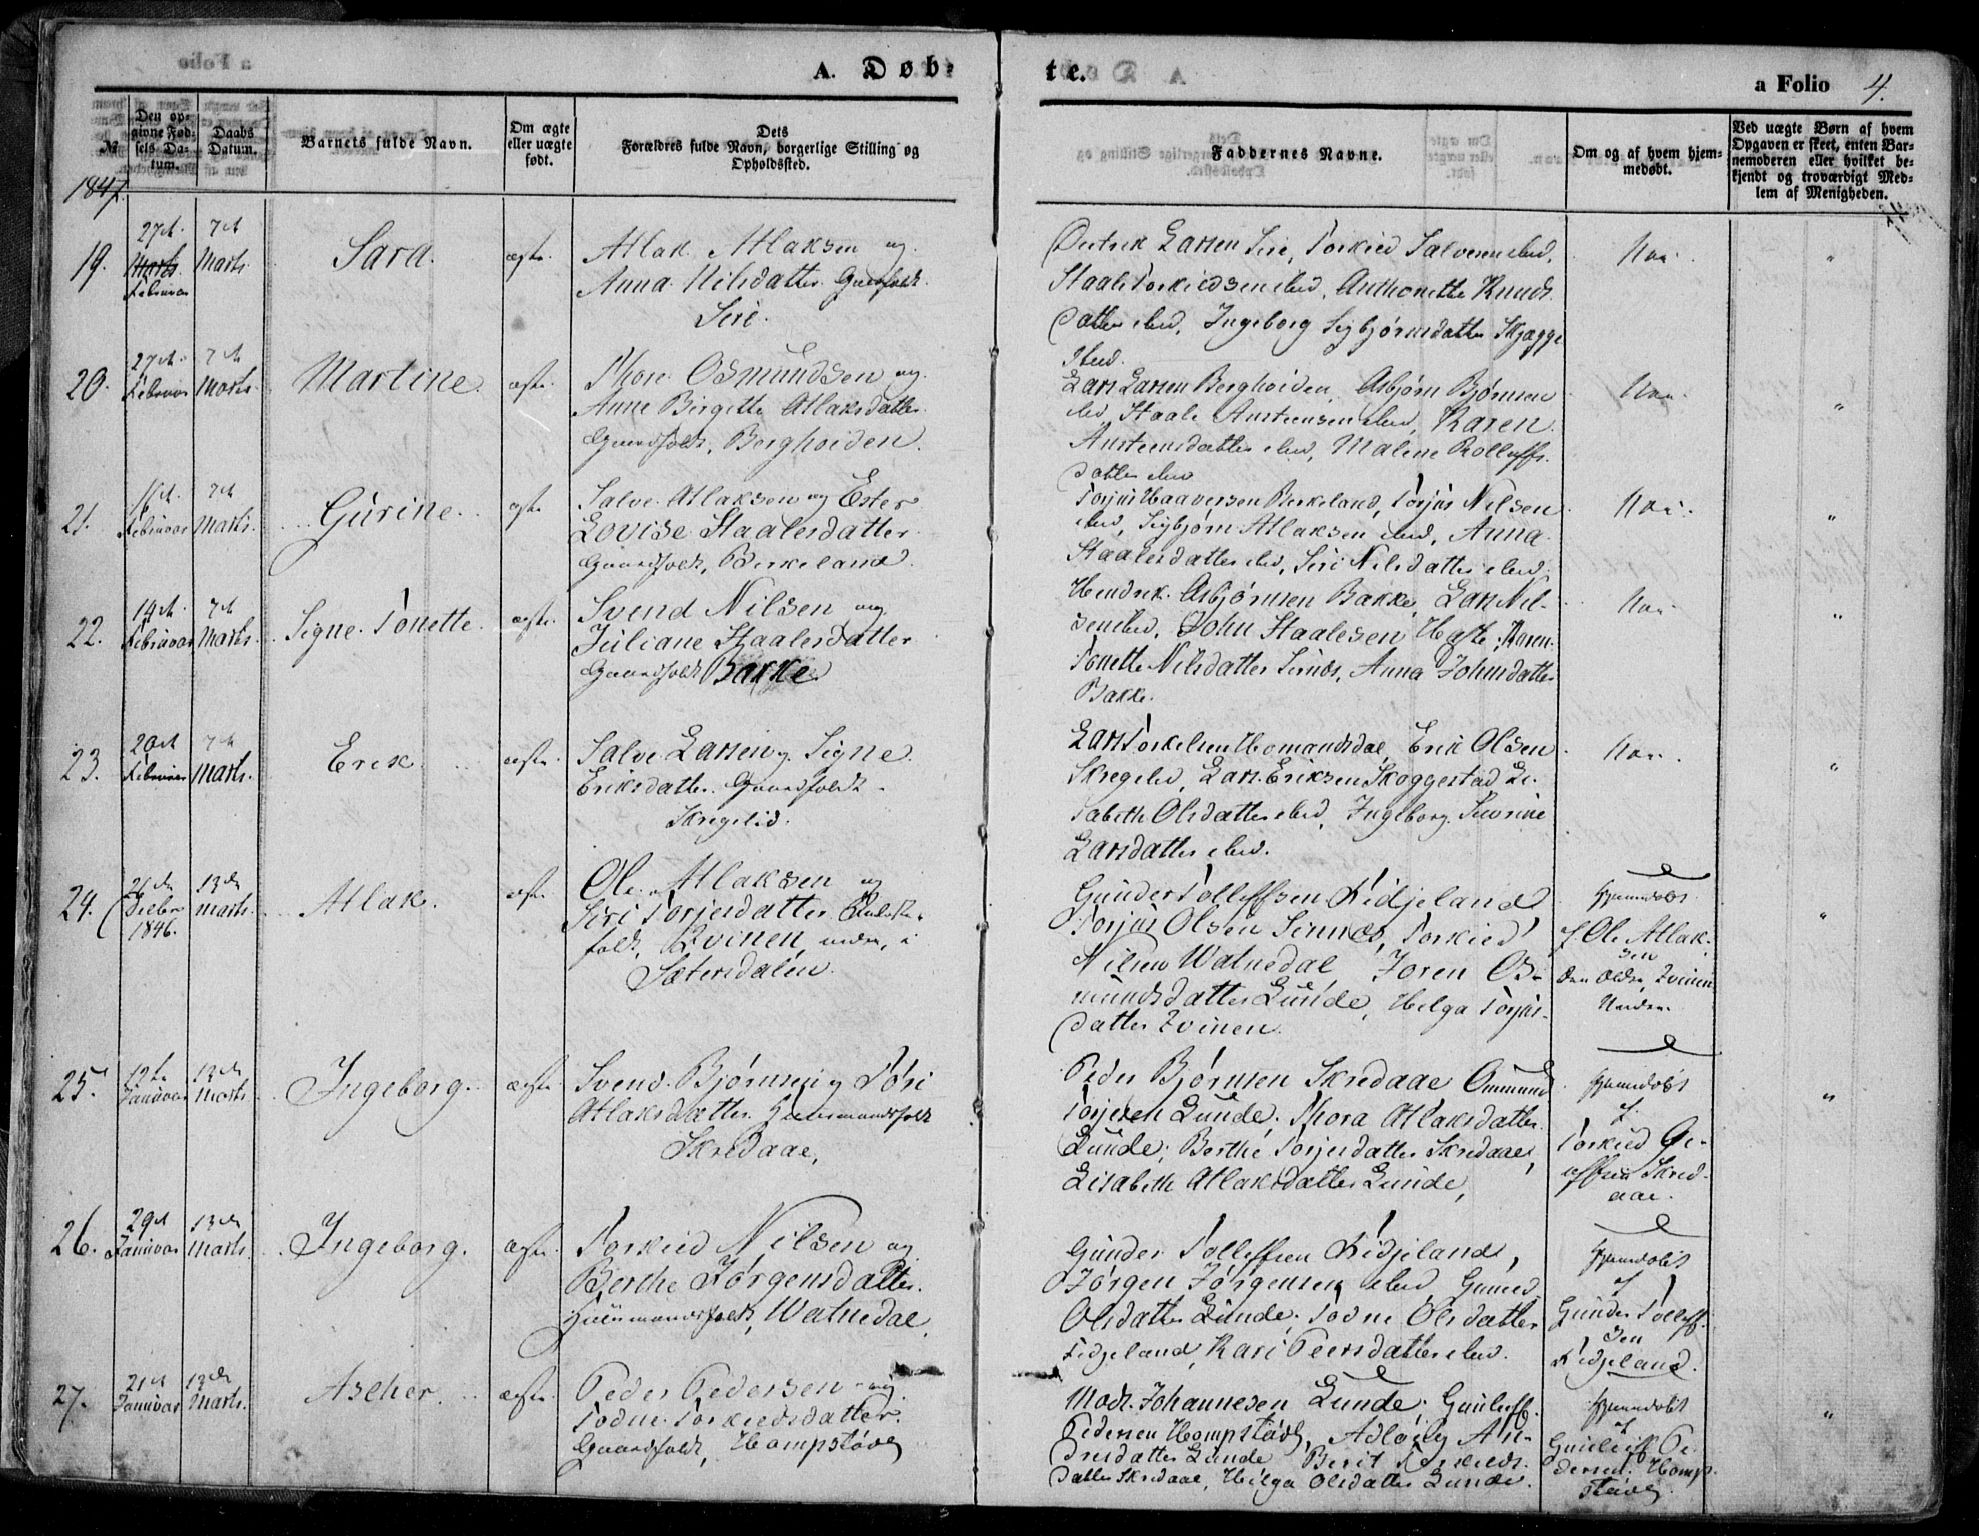 A. Døb-
te.
a Folio 4.
№
Den op-
givne Fød-
sels Da-
tum.
Daabs
Datum.
Barnets fulde Navn.
Om ægte
eller uægte
født.
Dets
Forældres fulde Navn, borgerlige Stilling og
Opholdssted.
Faddernes Navne.
Om og af hvem hjem-
medøbt.
Ved uægte Børn af hvem
Opgaven er skeet, enten Bar-
nemoderen eller hvilket be-
kjendt og troværdigt Med-
lem af Menigheden.
1847.
19.
27de
Marts
Februar
7de
Marts
Sara.
ægte.
Atlak Atlaksen og
Anna Nilsdatter Gaardfolk
Sire.
Larsen Sire, Torkied Salvesen ibid,
Staale Torkiedsen ibid, Anthonette Knuds
datter ibid, Ingeborg Sigbjørnsdatter Skjægge
sted.
Nei.
"
20.
27de
Februar
7de
Marts.
Martine.
ægte.
Thore Osmundsen og
Anne Birgitte Atlaksdatter
Gaardfolk, Berghoiden.
Lars Larsen Berghoiden, Asbjørn Bjørnsen
ibid, Staale Austensen ibid, Karen
Austensdatter ibid, Malene Rolleffs-
datter ibid
Nei.
"
21.
Februar
7de
Marts.
Gurine.
ægte
Salve Atlaksen og Ester
Lovise Staalesdatter
Gaardfolk, Birkeland.
Torjus Haaversen Birkeland, Torjus Nilsen
ibid, Sigbjørn Atlaksen ibid, Anna
Staalesdatter ibid, Siri Nilsdatter ibid.
Nei.
"
22.
14de
Februar
7de
Marts.
Signe Tonette.
ægte.
Svend Nilsen og
Juliane Staalesdatter
Gaardfolk Bakke
Hendrik Asbjørnsen Bakke, Lars Nil-
sen ibid, John Staalesen Karen
Tonette Nilsdatter Anna Johnsdatter
Bakke.
Nei.
"
23.
20de
Februar
7de
Marts.
Erik.
ægte.
Salve Larsen og Signe
Eriksdatter Gaardfolk
Skregelid.
Lars Torkelsen Homandsdal, Erik Olsen
Skregelid, Lars Eriksen Skoggestad Li-
sabeth Olsdatter ibid, Ingeborg Severine
Larsdatter ibid.
Nei.
"
24.
26de
Decbr
1846.
13de
Marts.
Atlak.
ægte.
Ole Atlaksen og
Siri Torjesdatter
folk, Qvinen, nedre, i
Sætersdalen.
Gunder Tolleffsen Fidjeland
Torjus Olsen Sinnes, Torkied
Nilsen Watnedal, Joren Os-
mundsdatter Lunde, Helga Torjus-
datter Qvinen.
Hjemmedøbt
af Ole Atlak-
sen
Qvinen
Nedre.
"
25.
12te
Januar
13de
Marts.
Ingeborg.
ægte.
Svend Bjørnsen og Tøri
Atlaksdatter Huusmandsfolk
Skredaae,
Peder Bjørnsen Skredaae Ommund
Torjesen Lunde, Thora Atlaksdatter
Lunde; Berthe Torjesdatter Skredaae,
Elisabeth Atlaksdatter Lunde,
Hjemmedøbt
af
Torkied
Skred-
aae.
"
26.
29de
Januar
13de
Marts.
Ingeborg.
ægte.
Torkied Nilsen og
Berthe Jørgensdatter
Huusmandsfolk, Watnedal.
Gunder Tolleffsen Fidjeland,
Jørgen Jørgensen ibid Gunild
Olsdatter Lunde, Todne Olsdatter
Fidjeland, Kari Peersdatter ibid.
Hjemmedøbt
af
Gunder Tolleff-
sen
Fidjeland.
27.
21de
Januar
13de
Marts.
Ascher.
ægte.
Peder Pedersen og
Todne Torkiedsdatter
Gaardfolk, Hompstøvl
Mads Johannesen Lunde, Gunleff
Pedersen Hompstøvl, Adlaug An-
dresdatter Lunde Berit Torkields-
datter Skredaae, Helga Olsdatter Lunde.
Hjemmedøbt
af
Gunleiff Pe-
dersen Homp-
støvl.
"